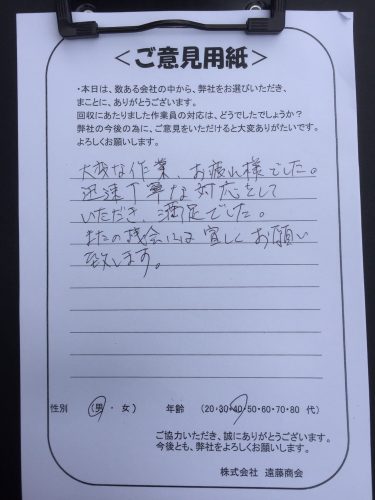 ＜ご意見用紙＞
・本日は、数ある会社の中から、弊社をお選びいただき、
まことに、ありがとうございます。
回収にあたりました作業員の対応は、どうでしたでしょうか？
弊社の今後の為に、ご意見をいただけると大変ありがたいです。
よろしくお願いします。
大変な作業、お疲れ様でした。
迅速丁寧な対応をして
いただき、満足でした。
またの機会には宜しくお願い
致します。
性別　（男・女）　年齢　（20・30・40・50・60・70・80 代）
ご協力いただき、誠にありがとうございます。
今後とも、弊社をよろしくお願いします。
株式会社　遠藤商会